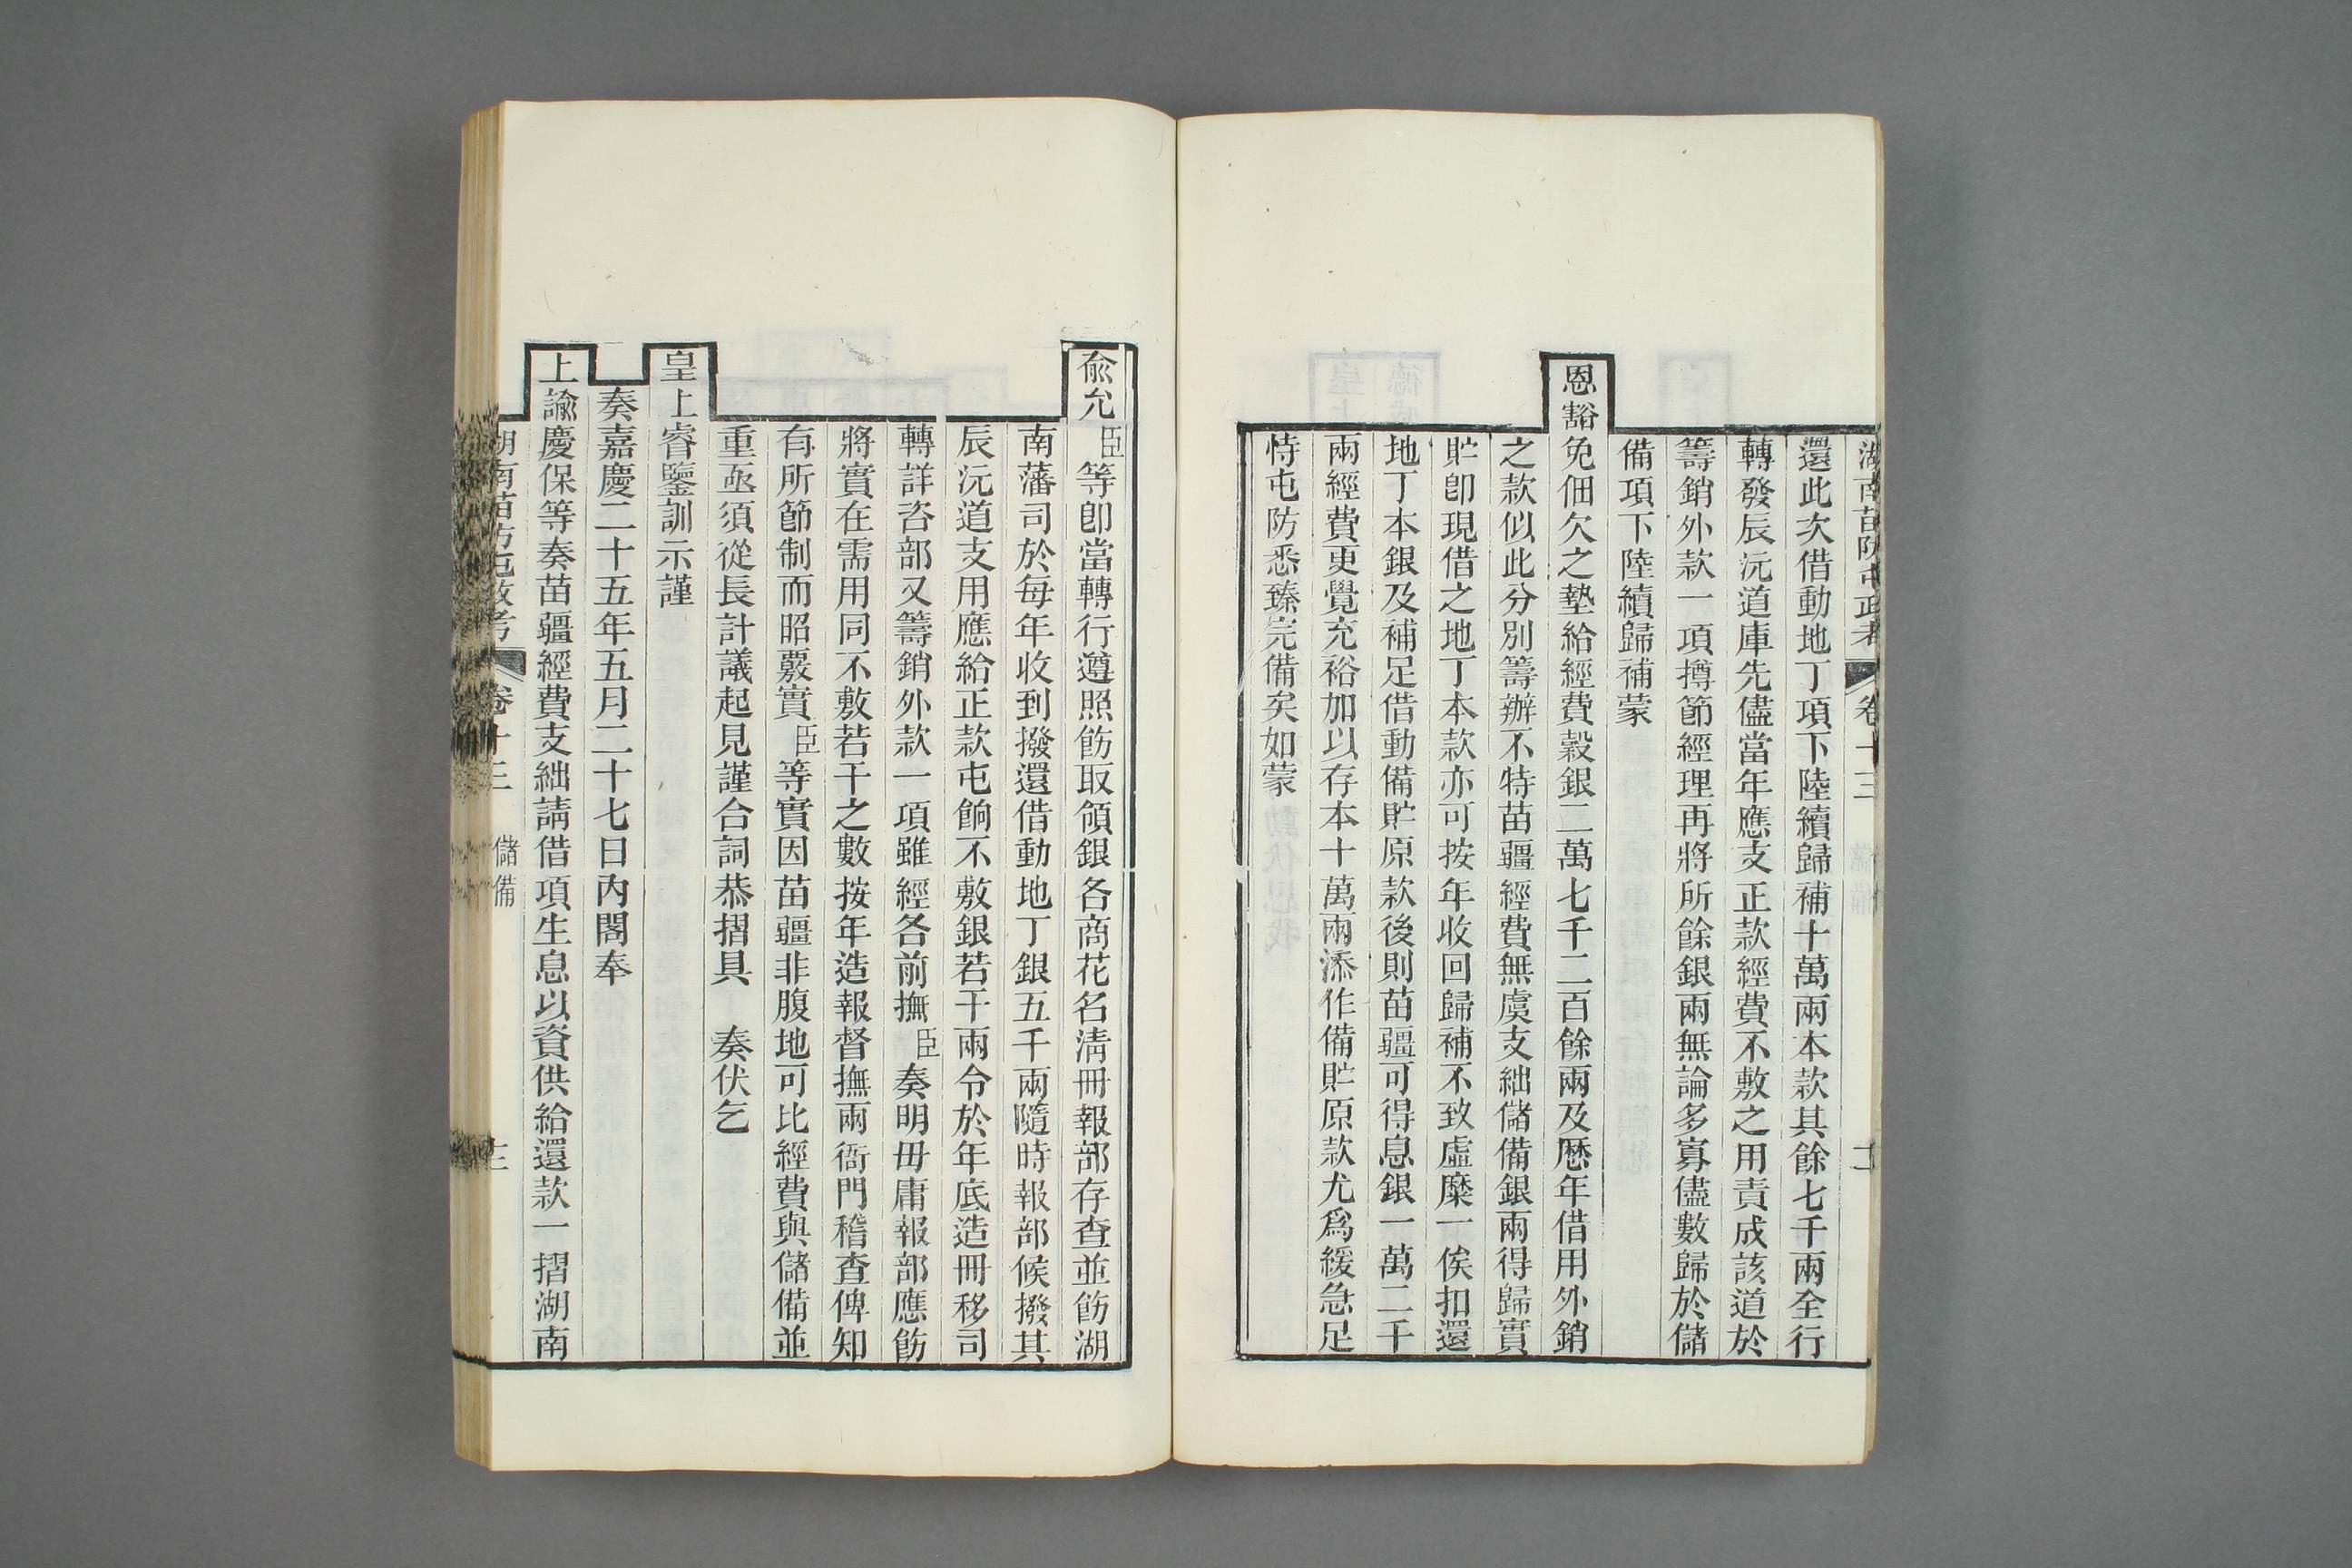 湖南苗防屯政考 卷十三
還此次借動地丁項下陸續歸補十萬兩本款其餘七千兩全行
轉發辰沅道庫先儘當年應支正款經費不敷之用責成該道於
籌銷外款一項撙節經理再將所餘銀兩無論多寡儘數歸於儲
備項下陸續歸補蒙
恩豁免佃欠之墊給經費穀銀二萬七千二百餘兩及歷年借用外銷
之款似此分別籌辦不特苗疆經費無虞支絀儲備銀兩得歸實
貯卽現借之地丁本款亦可按年收回歸補不致虛糜一俟扣還
地丁本銀及補足借動備貯原款後則苗疆可得息銀一萬二千
兩經費更覺充裕加以存本十萬兩添作備貯原款尤爲緩急足
恃屯防悉臻完備矣如蒙
兪允臣等卽當轉行遵照飭取領銀各商花名淸冊報部存查並飭湖
南藩司於每年收到撥還借動地丁銀五千兩隨時報部候撥其
辰沅道支用應給正款屯餉不敷銀若干兩令於年底造冊移司
轉詳咨部又籌銷外款一項雖經各前撫臣奏明毋庸報部應飭
將實在需用同不敷若干之數按年造報督撫兩衙門稽查俾知
有所節制而昭覈實臣等實因苗疆非腹地可比經費與儲備並
重亟須從長計議起見謹合詞恭摺具 奏伏乞
皇上睿鑒訓示謹
奏嘉慶二十五年五月二十七日內閣奉
上諭慶保等奏苗疆經費支絀請借項生息以資供給還款一摺湖南
湖南苗防屯政考 卷十三 儲備